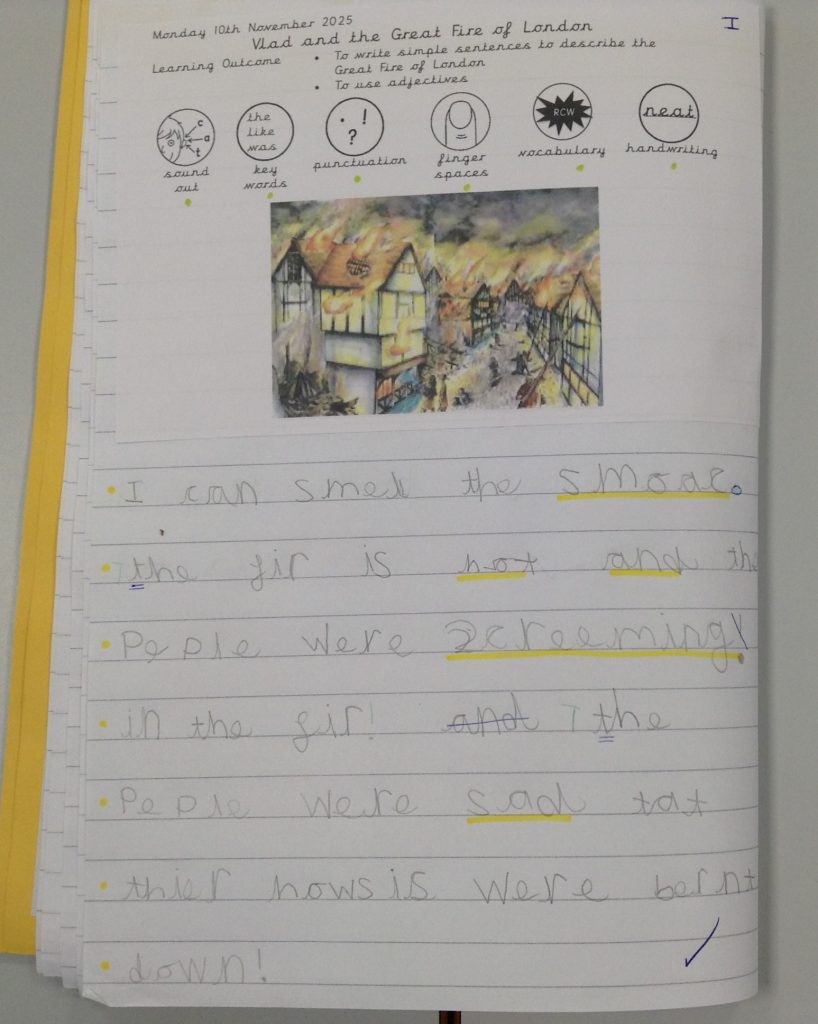 Monday 10th November 2025
I
Vlad and the Great Fire of London
Learning Outcome
• To write simple sentences to describe the
Great Fire of London
• To use adjectives
c
a
t
the
like
was
. !
?
RCW
neat
sound
out
key
words
punctuation
finger
spaces
vocabulary
handwriting
I can smell the smoac.
the fir is hot and the
Peple were screeming!
in the fir! and T the
Peple were sad tat
thier howsis were bernt
down!